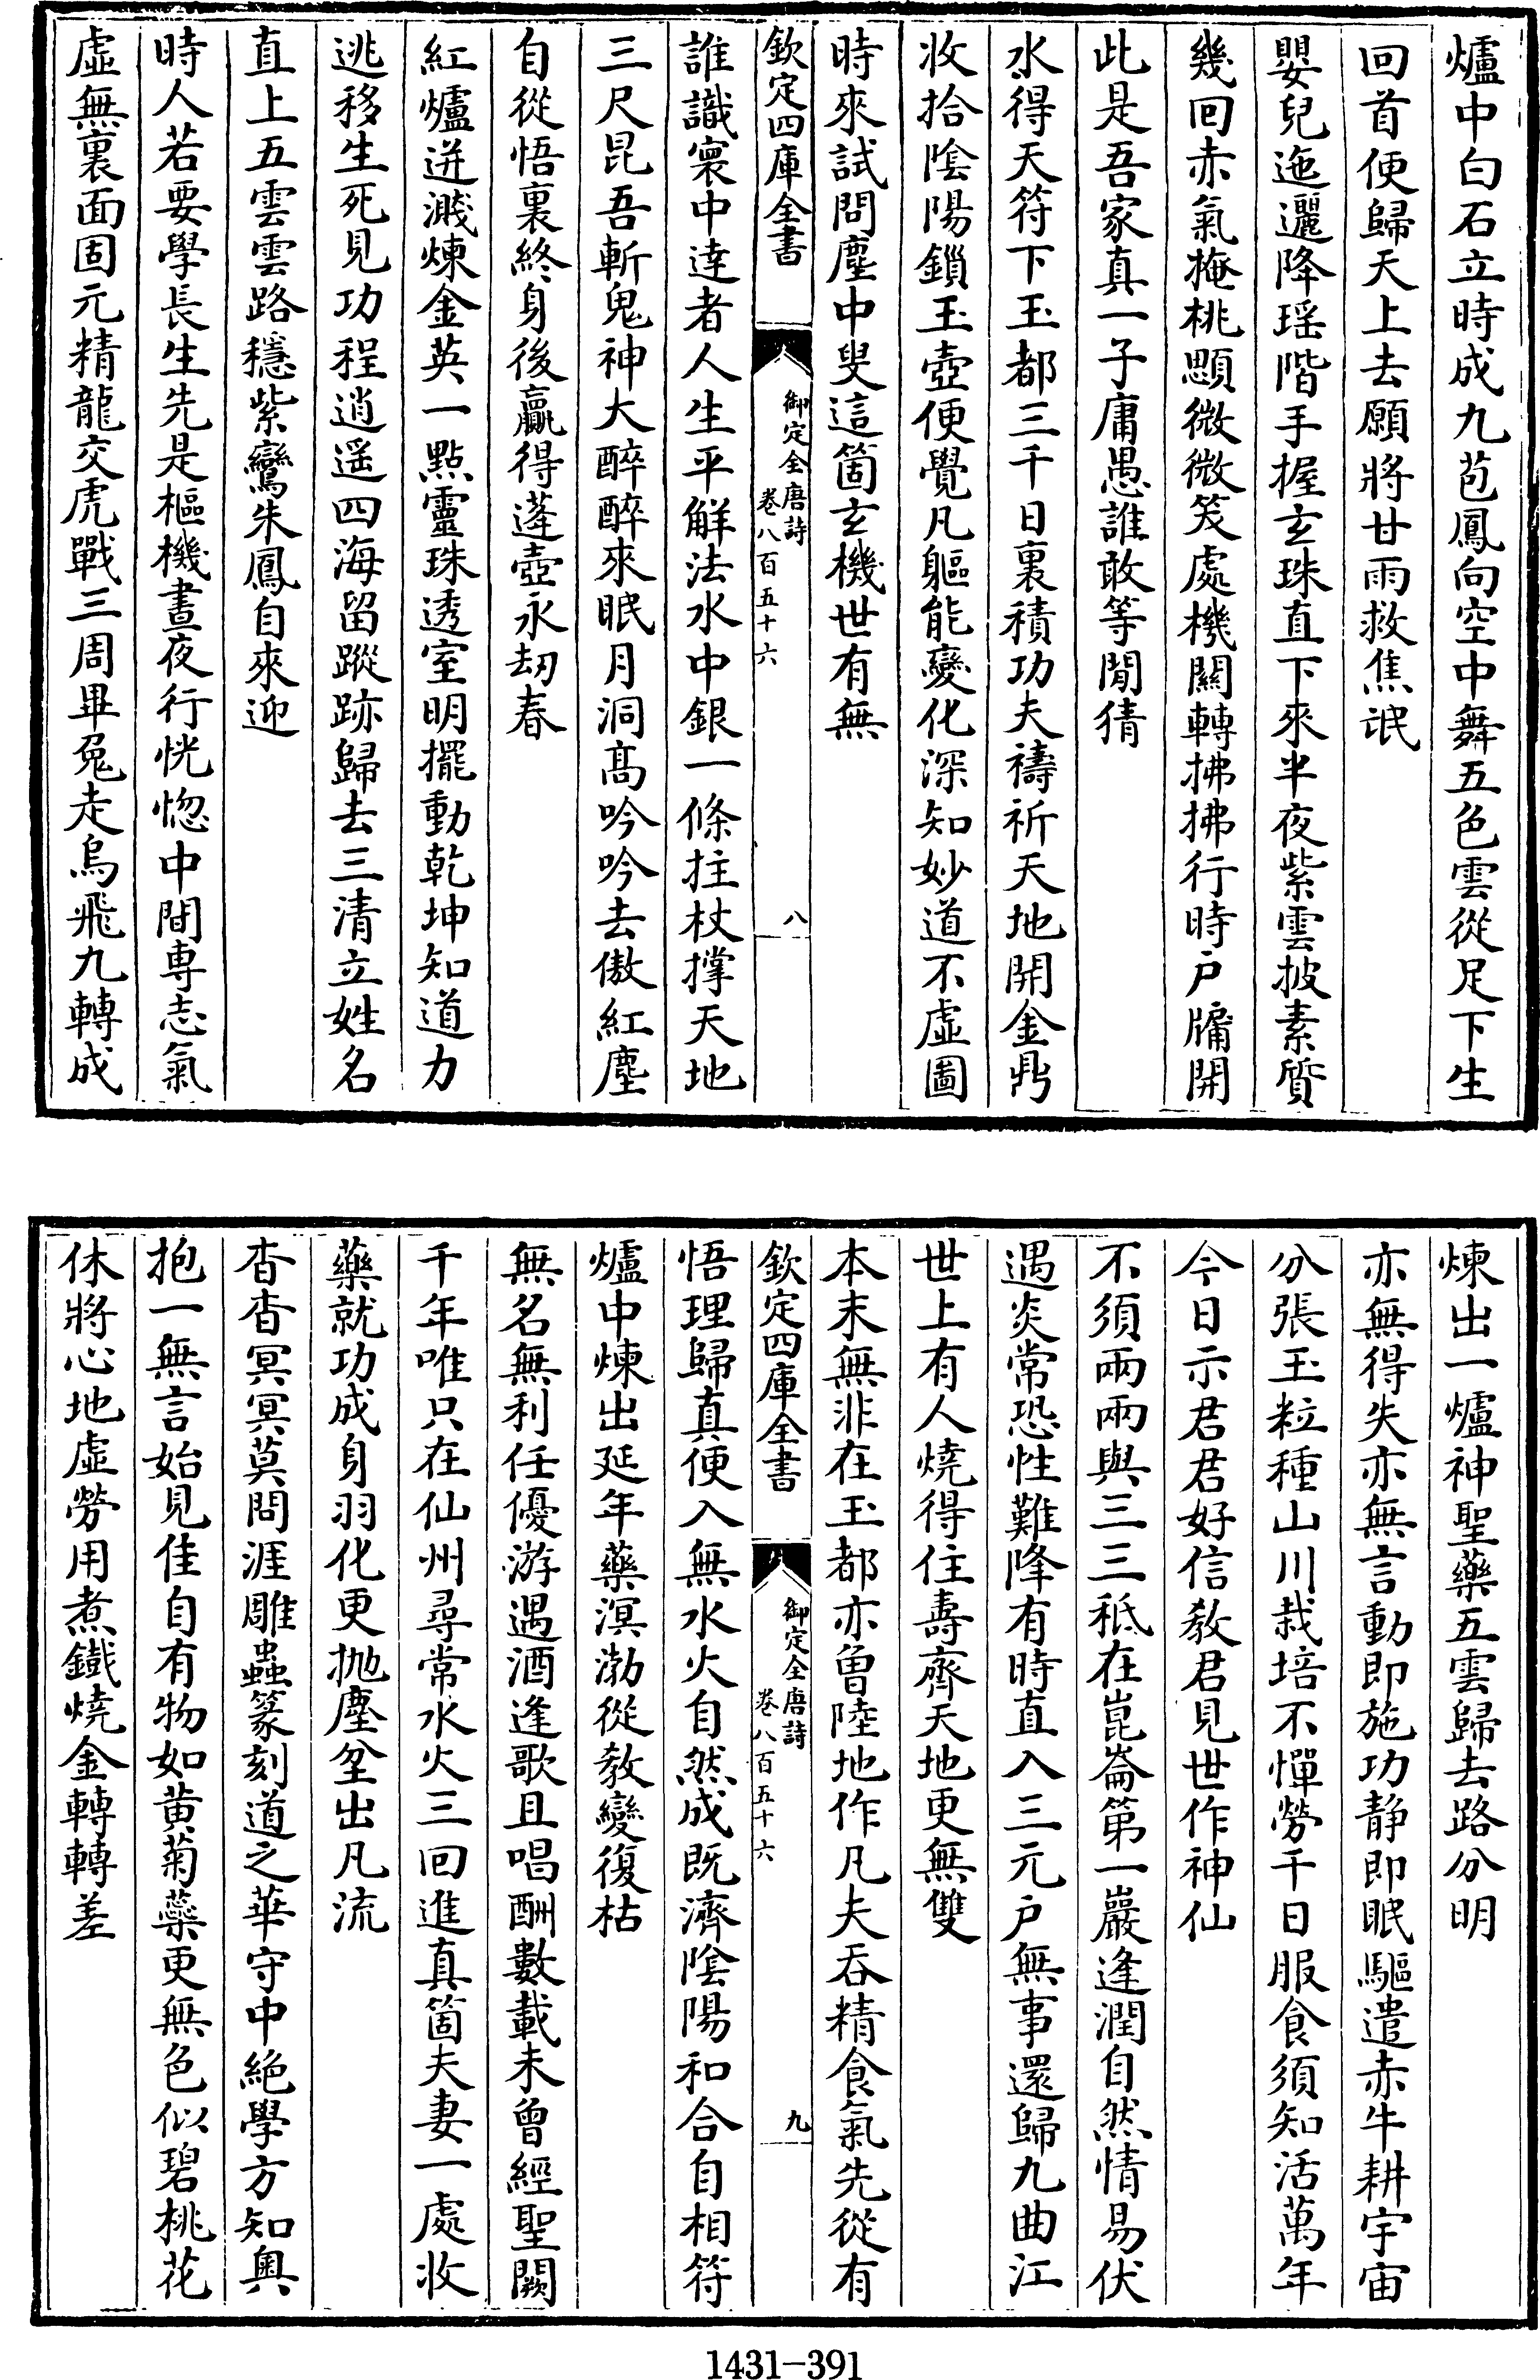 爐中白石立時成九苞鳳向空中舞五色雲從足下生
回首便歸天上去願將甘雨救焦氓
嬰兒迤邐降瑶階手握玄珠直下來半夜紫雲披素質
幾回赤氣掩桃顋微微笑處機關轉拂拂行時户牖開
此是吾家真一子庸愚誰敢等閒猜
水得天符下玉都三千日裏積功夫禱祈天地開金鼎
收拾陰陽鎻玉壺便覺凡軀能變化深知妙道不虛圖
時來試問塵中叟這箇玄機世有無
欽定四庫全書
御定全唐詩
卷八百五十六
八
誰識寰中達者人生平解法水中銀一條拄杖撑天地
三尺昆吾斬鬼神大醉醉來眠月洞髙吟吟去傲紅塵
自從悟裏終身後贏得蓬壺永刼春
紅爐迸濺煉金英一點靈珠透室明擺動乾坤知道力
逃移生死見功程逍遥四海留蹤跡歸去三清立姓名
直上五雲雲路穩紫鸞朱鳳自來迎
時人若要學長生先是樞機晝夜行恍惚中間専志氣
虛無裏面固元精龍交虎戰三周畢兔走烏飛九轉成
煉出一爐神聖藥五雲歸去路分明
亦無得失亦無言動即施功静即眠驅遣赤牛耕宇宙
分張玉粒種山川栽培不憚勞千日服食須知活萬年
今日示君君好信教君見世作神仙
不須兩兩與三三秖在崑崙第一巖逢潤自然情易伏
遇炎常恐性難降有時直入三元户無事還歸九曲江
世上有人燒得住壽齊天地更無雙
本末無非在玉都亦曽陸地作凡夫吞精食氣先從有
欽定四庫全書
御定全唐詩
卷八百五十六
九
悟理歸真便入無水火自然成既濟陰陽和合自相符
爐中煉出延年藥溟渤從教變復枯
無名無利任優游遇酒逢歌且唱酬數載未曾經聖闕
千年唯只在仙州尋常水火三回進真箇夫妻一處收
藥就功成身羽化更抛塵坌出凡流
杳杳冥冥莫問涯雕蟲篆刻道之華守中絶學方知奥
抱一無言始見佳自有物如黄菊蘂更無色似碧桃花
休將心地虛勞用煮鐵燒金轉轉差
1431-391